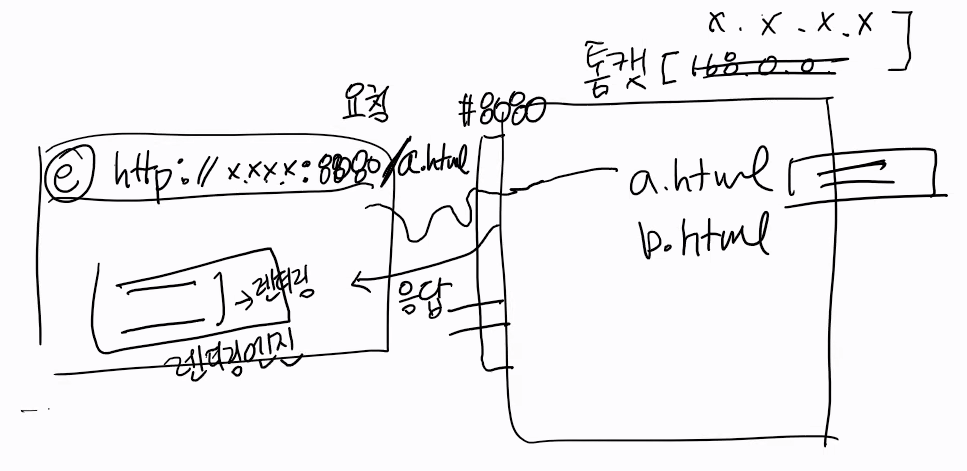 x.x.x.x
톰캣 [168.0.0.]
요청
#8080
e http://x.x.x.x:8080/a.html
a.html
b.html
→렌더링
응답
렌더링엔진